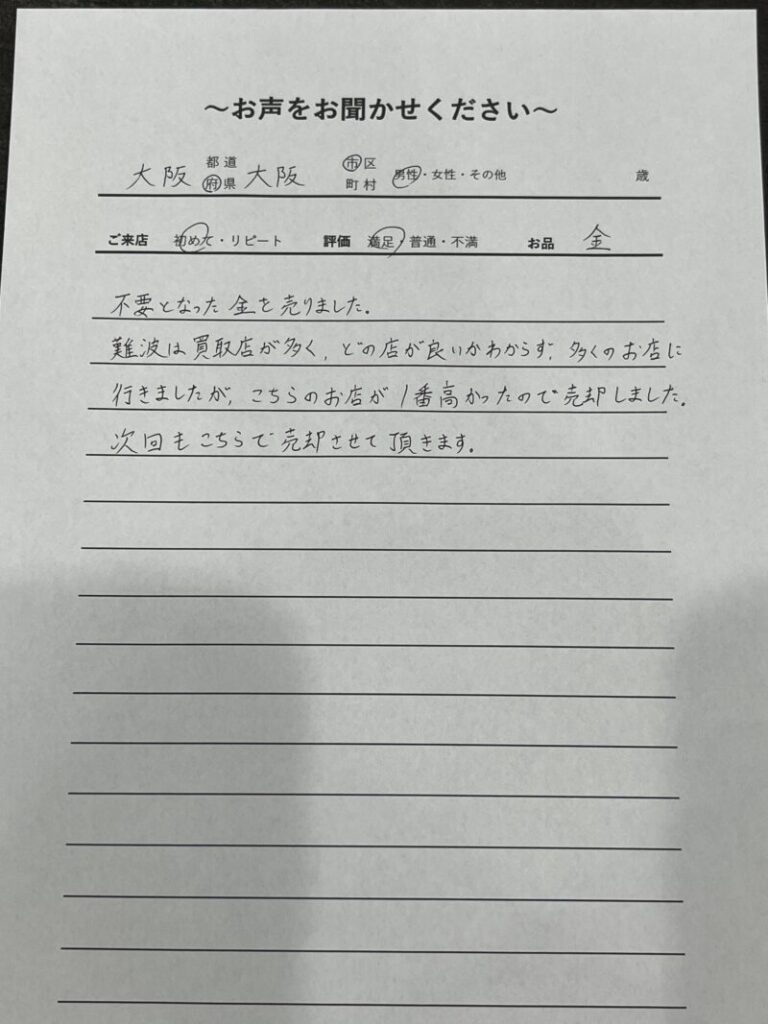 ～お声をお聞かせください～
大阪 都道府県 大阪 市区町村 男性・女性・その他 歳
ご来店 初めて・リピート 評価 満足・普通・不満 お品 金
不要となった金を売りました。
難波は買取店が多く、どの店が良いかわからず、多くのお店に
行きましたが、こちらのお店が1番高かったので売却しました。
次回もこちらで売却させて頂きます。